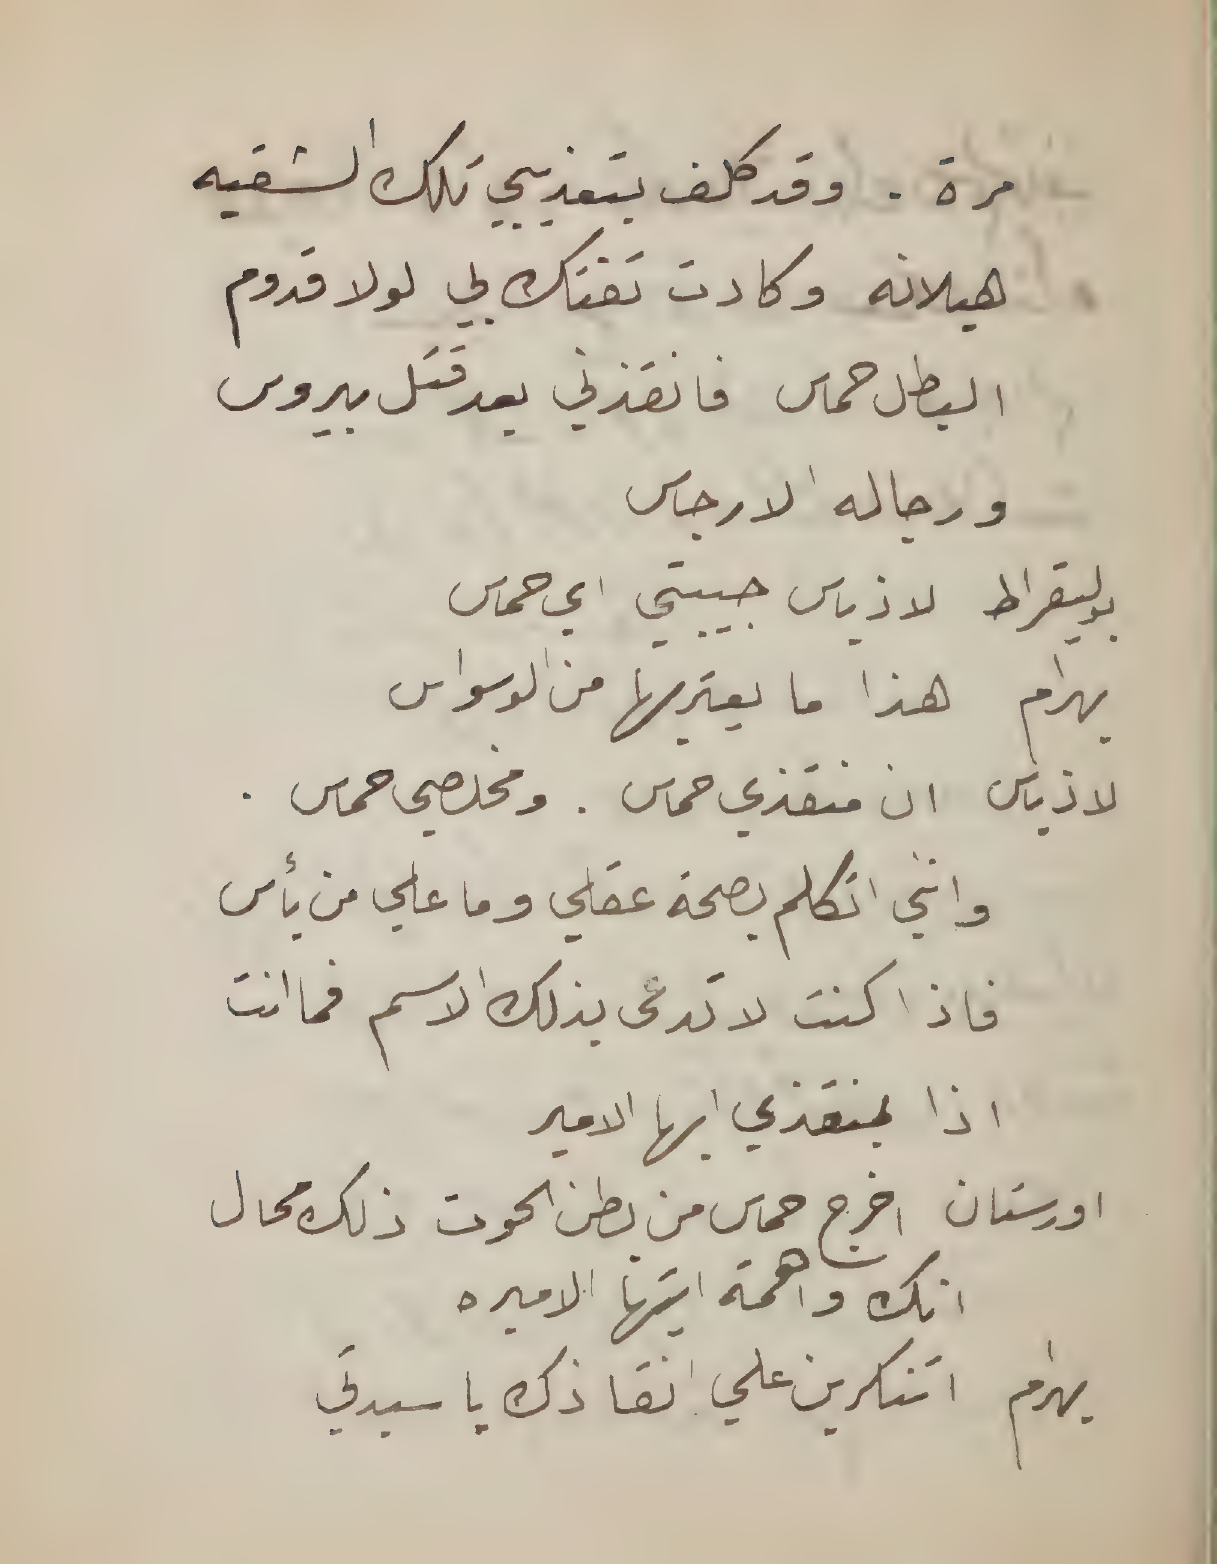 مرة . وقد كلف بتعذيبي تلك الشقيه
هيلانه وكادت تفتك بي لولا قدوم
البطل حماس فانقذني بعد قتل بيروس
ورجاله الارجاس
بوليقراط لاذياس حبيبتي اي حماس
بهرام هذا ما يعتريها من الوسواس
لاذياس ان منقذي حماس . ومخلصي حماس .
وانني اتكلم بصحة عقلي وما علي من بأس
فاذا كنت لا تدعى بذلك الاسم فما انت
اذا بمنقذي ايها الامير
اورستان اخرج حماس من بطن الحوت ذلك محال
انك واهمة ايتها الاميره
بهرام اتنكرين علي انقاذك يا سيدتي